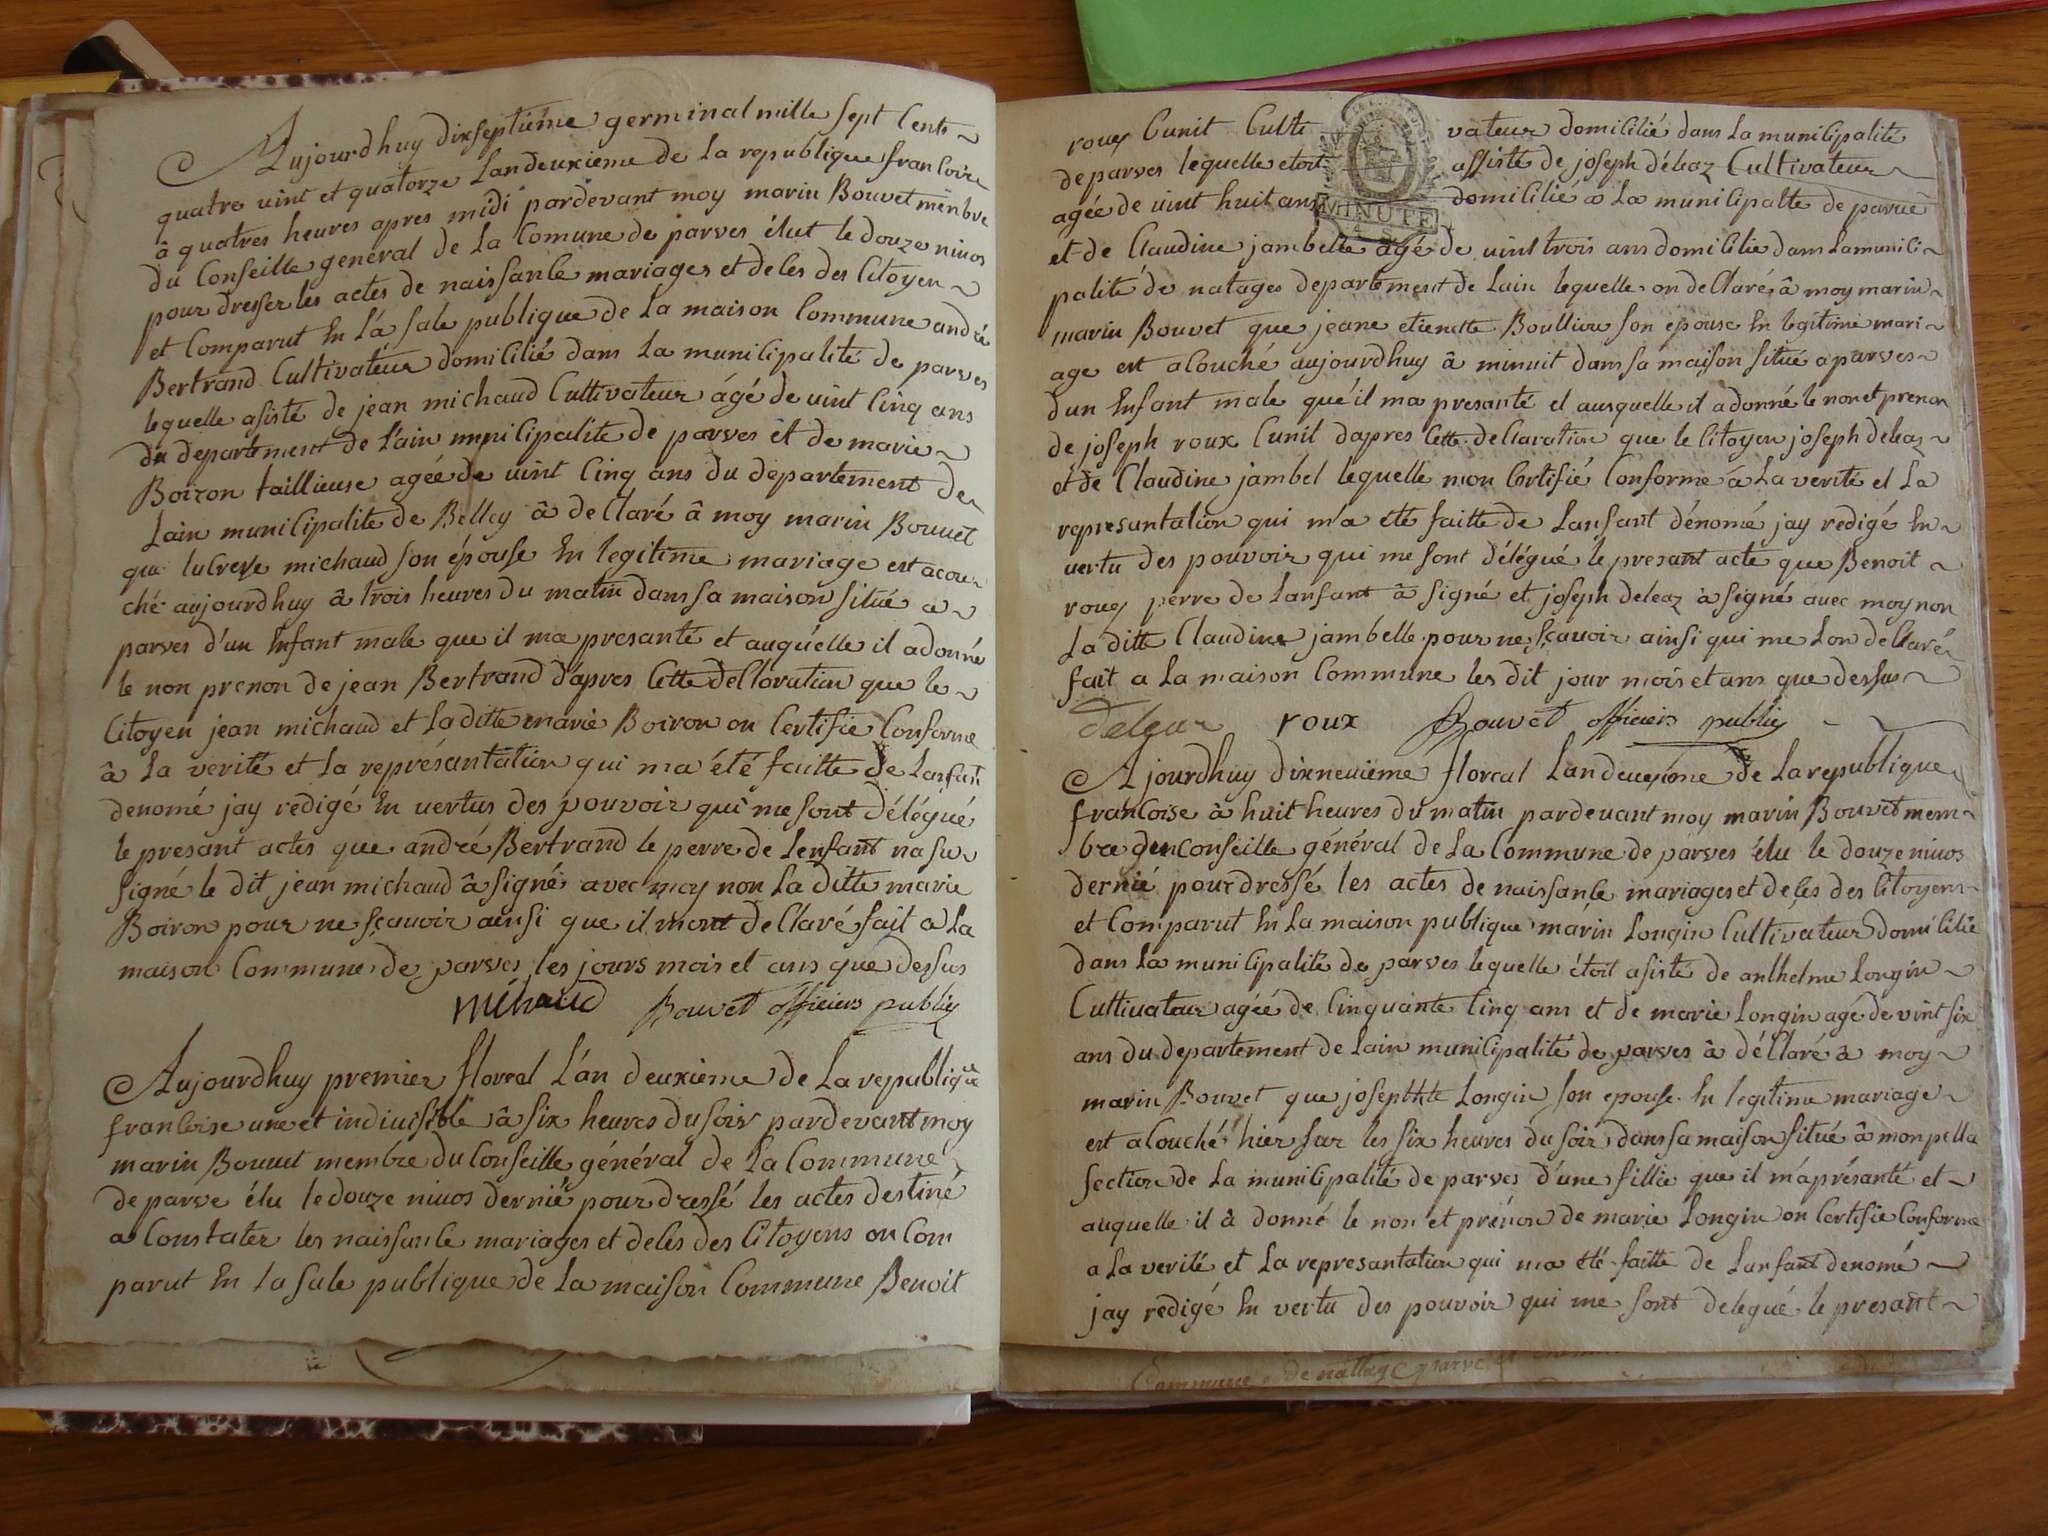 Aujourdhuy dixseptieme germinal mille sept Cents
quatre vint et quatorze Landeuxieme de La republique francoise
à quatres heures apres midi pardevant moy marin Bouvet menbre
du Conseille general de La Comune de parves élut le douze nivos
pour dresser les actes de naissance mariages et deces des Citoyen
et Comparut En La sale publique de La maison Commune andré
Bertrand Cultivateur domicilié dans La municipalité de parves
lequelle asisté de jean michaud Cultivateur âgé de vint Cinq ans
du departement de L'ain municipalite de parves et de marie
Boiron taillieuse agée de vint Cinq ans du departement de
Lain municipalite de Belley à declaré à moy marin Bouvet
que lucresse michaud son épouse En legitime mariage est acou
ché aujourdhuy à trois heures du matin dans sa maison situé a
parves d'un Enfant male que il ma presanté et auquélle il a donné
le non prenon de jean Bertrand d'apres Cette declaration que le
Citoyen jean michaud et La ditte marie Boiron on Certifie Conforme
à La verité et La représantation qui ma été faitte de Lanfant
denomé jay redigé En vertus des pouvoir qui me sont délégué
le presant actes que andré Bertrand le perre de Lenfant na su
signé le dit jean michaud à signé avec moy non La ditte marie
Boiron pour ne sçavoir ainsi que il mont declaré fait a La
maison Commune de parves les jours mois et ans que dessus
Michaud Bouvet officiers public
Aujourdhuy premier floreal L'an deuxieme de La republique
francoise une et indivisible à six heures du soir pardevant moy
marin Bouvet membre du Conseille général de La Commune
de parve élu le douze nivos dernié pour dressé les actes destiné
a Constater les naissance mariages et deces des Citoyens on Com
parut En la sale publique de La maison Commune Benoit
roux Cunit Culti vateur domicilié dans La municipalité
de parves lequelle etoit assisté de joseph déleaz Cultivateur
agée de vint huit ans domicilié a La municipalte de parve
MINUTE
et de Claudine jambelle âgé de vint trois ans domicilie dans La munici
palité de natages departement de Lain lequelle on declaré à moy marin
marin Bouvet que jeane etienette Boullion son epouse En legitime mari
age est acouché aujourdhuy à minuit dans sa maison situé a parves
dun Enfant male que il ma presanté et ausquelle il a donné le non et prenon
de joseph roux Cunit dapres Cette declaration que le Citoyen joseph deleaz
et de Claudine jambel lequelle mon Certifié Conforme à La verité et La
represantation qui m'a été faitte de Lanfant dénomé jay redigé En
vertu des pouvoir qui me sont délégué le presant acte que Benoit
roux perre de Lanfant à signé et joseph deleaz à signé avec moy non
La ditte Claudine jambelle pour ne sçavoir ainsi qui me Lon declaré
fait a La maison Commune les dit jour mois et ans que dessus
deleaz roux Bouvet officiers public
Ajourdhuy dixneuieme floreal Landeuxieme de La republique
francoise à huit heures du matin pardevant moy marin Bouvet mem
bre du Conseille général de La Commune de parves élu le douze nivos
dernié pour dressé les actes de naissance mariages et deces des Citoyens
et Comparut En La maison publique marin Longin Cultivateur domicilié
dans La municipalité de parves lequelle étoit asisté de anthelme Longin
Cultivateur agée de Cinquante Cinq ans et de marie Longin agé de vint six
ans du departement de Lain municipalité de parves à déclaré à moy
marin Bouvet que josephtte Longin son epouse En legitime mariage
est acouché hier sur les six heures du soir dans sa maison situé à monpella
section de La municipalité de parves d'une fillie que il m'a présanté et
auquelle il à donné le non et prénon de marie Longin on Certifie Conforme
a La verité et La represantation qui ma été faitte de Lanfant denomé
jay redigé En vertu des pouvoir qui me sont delegué le presant
Commune de nattage parve et